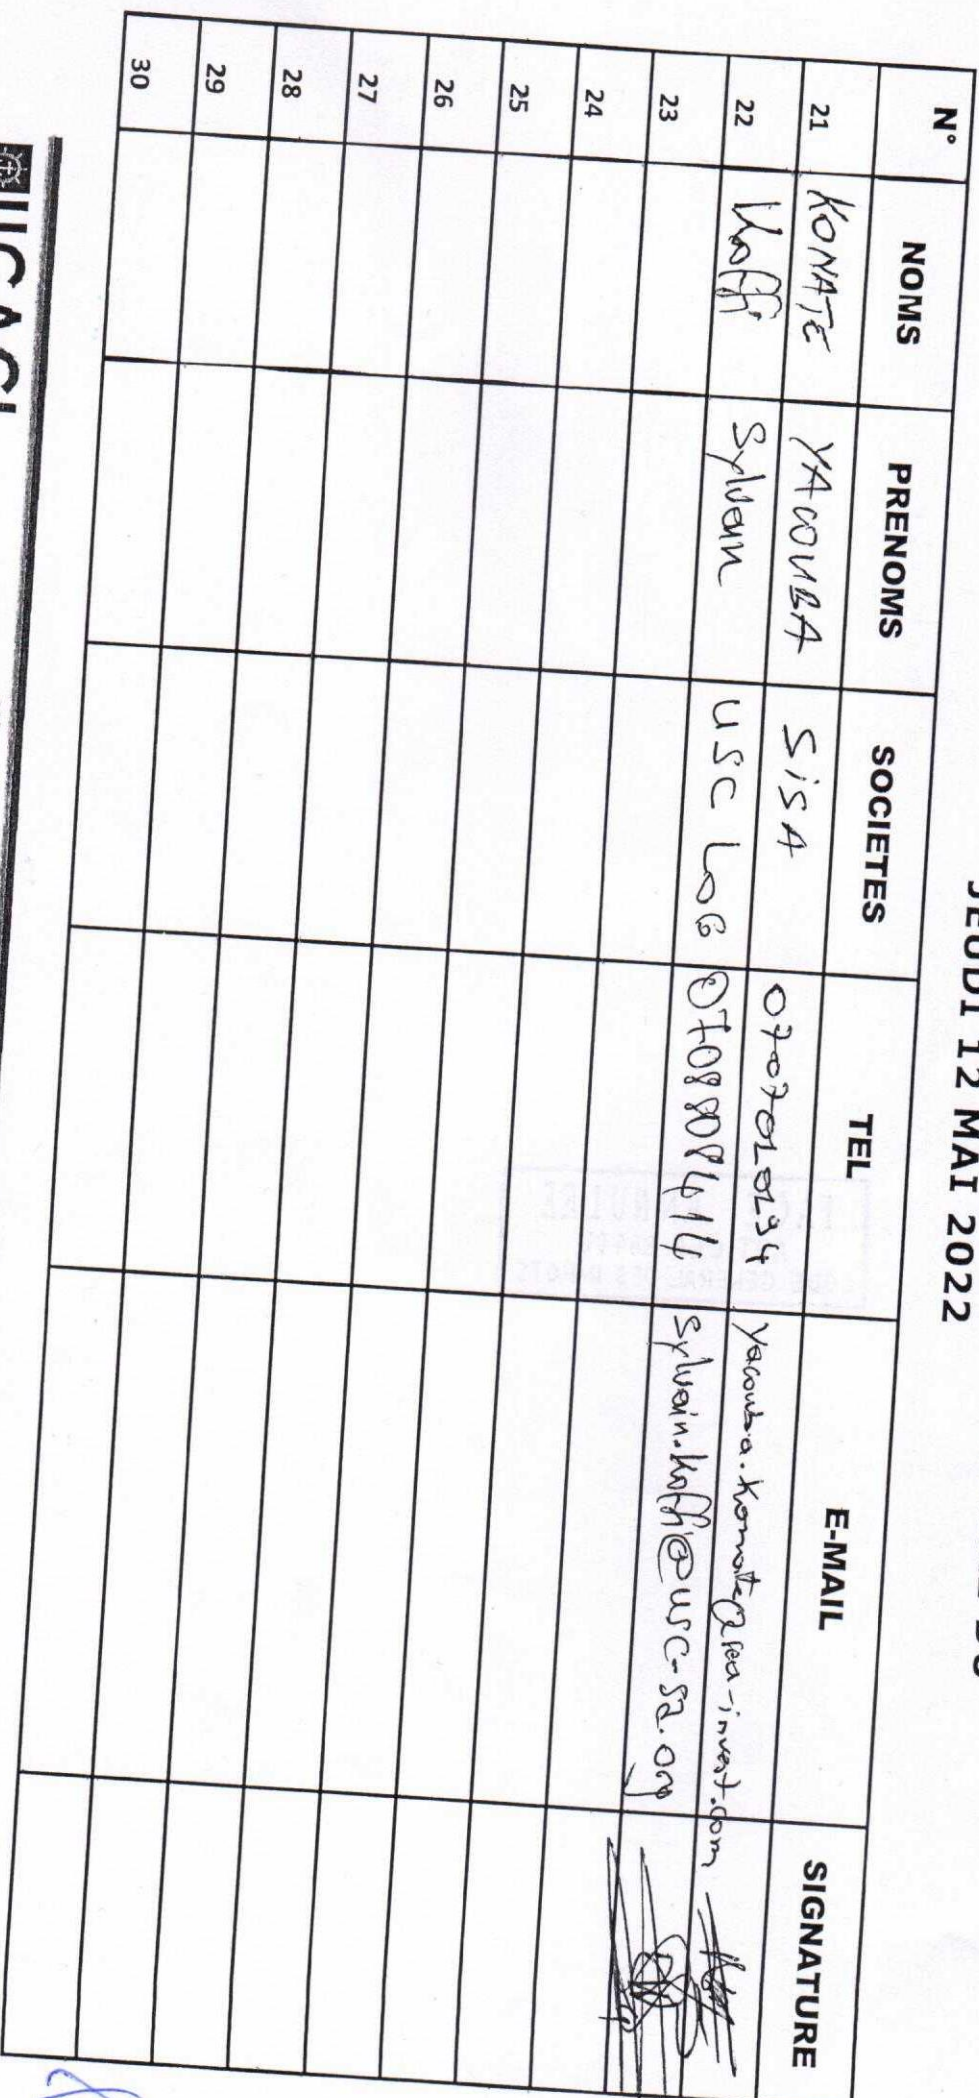 JEUDI 12 MAI 2022
N° NOMS PRENOMS SOCIETES TEL E-MAIL SIGNATURE
21 KONATE YACOUBA SiSA 0707020294 yacouba.konate@sea-invest.com
22 Koffi Sylvain USC LOG 0708808414 sylvain.koffi@usc-sa.org
23
24
25
26
27
28
29
30